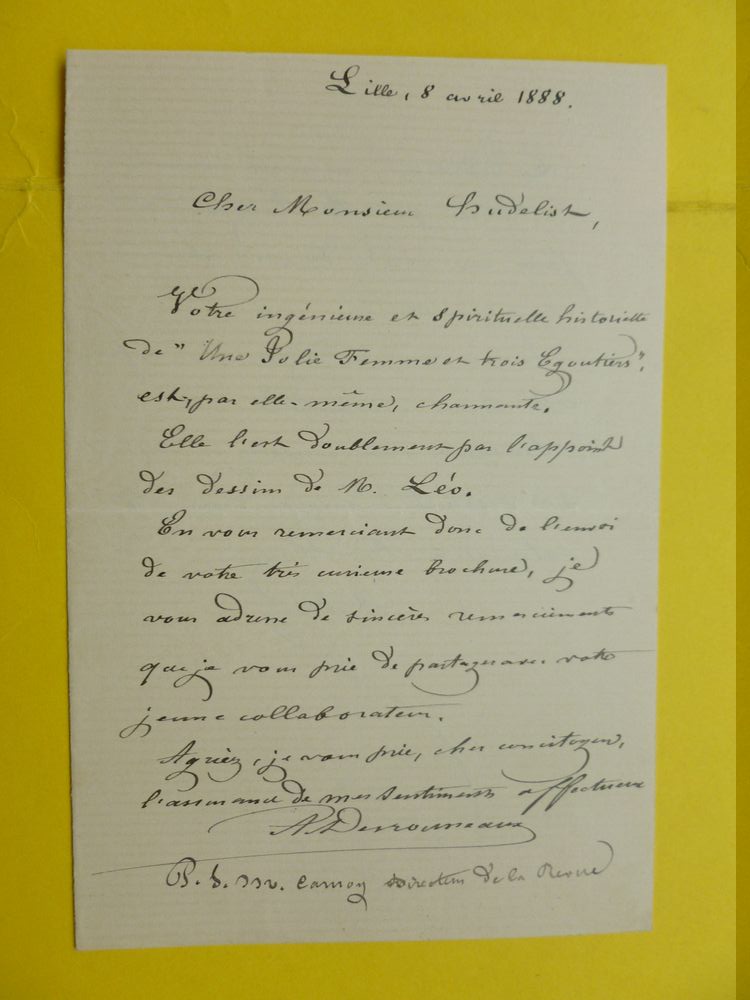 Lille, 8 avril 1888.
Cher Monsieur Hudelist,
Votre ingénieuse et spirituelle historiette
de " Une Jolie Femme et trois Egoutiers",
est, par elle-même, charmante.
Elle l'est doublement par l'appoint
des dessins de M. Léo.
En vous remerciant donc de l'envoi
de votre très curieuse brochure, je
vous adresse de sincères remerciements
que je vous prie de partager avec votre
jeune collaborateur.
Agréez, je vous prie, cher concitoyen,
l'assurance de mes sentiments affectueux
A Desrousseaux
M. Carnoy Directeur de la Revue